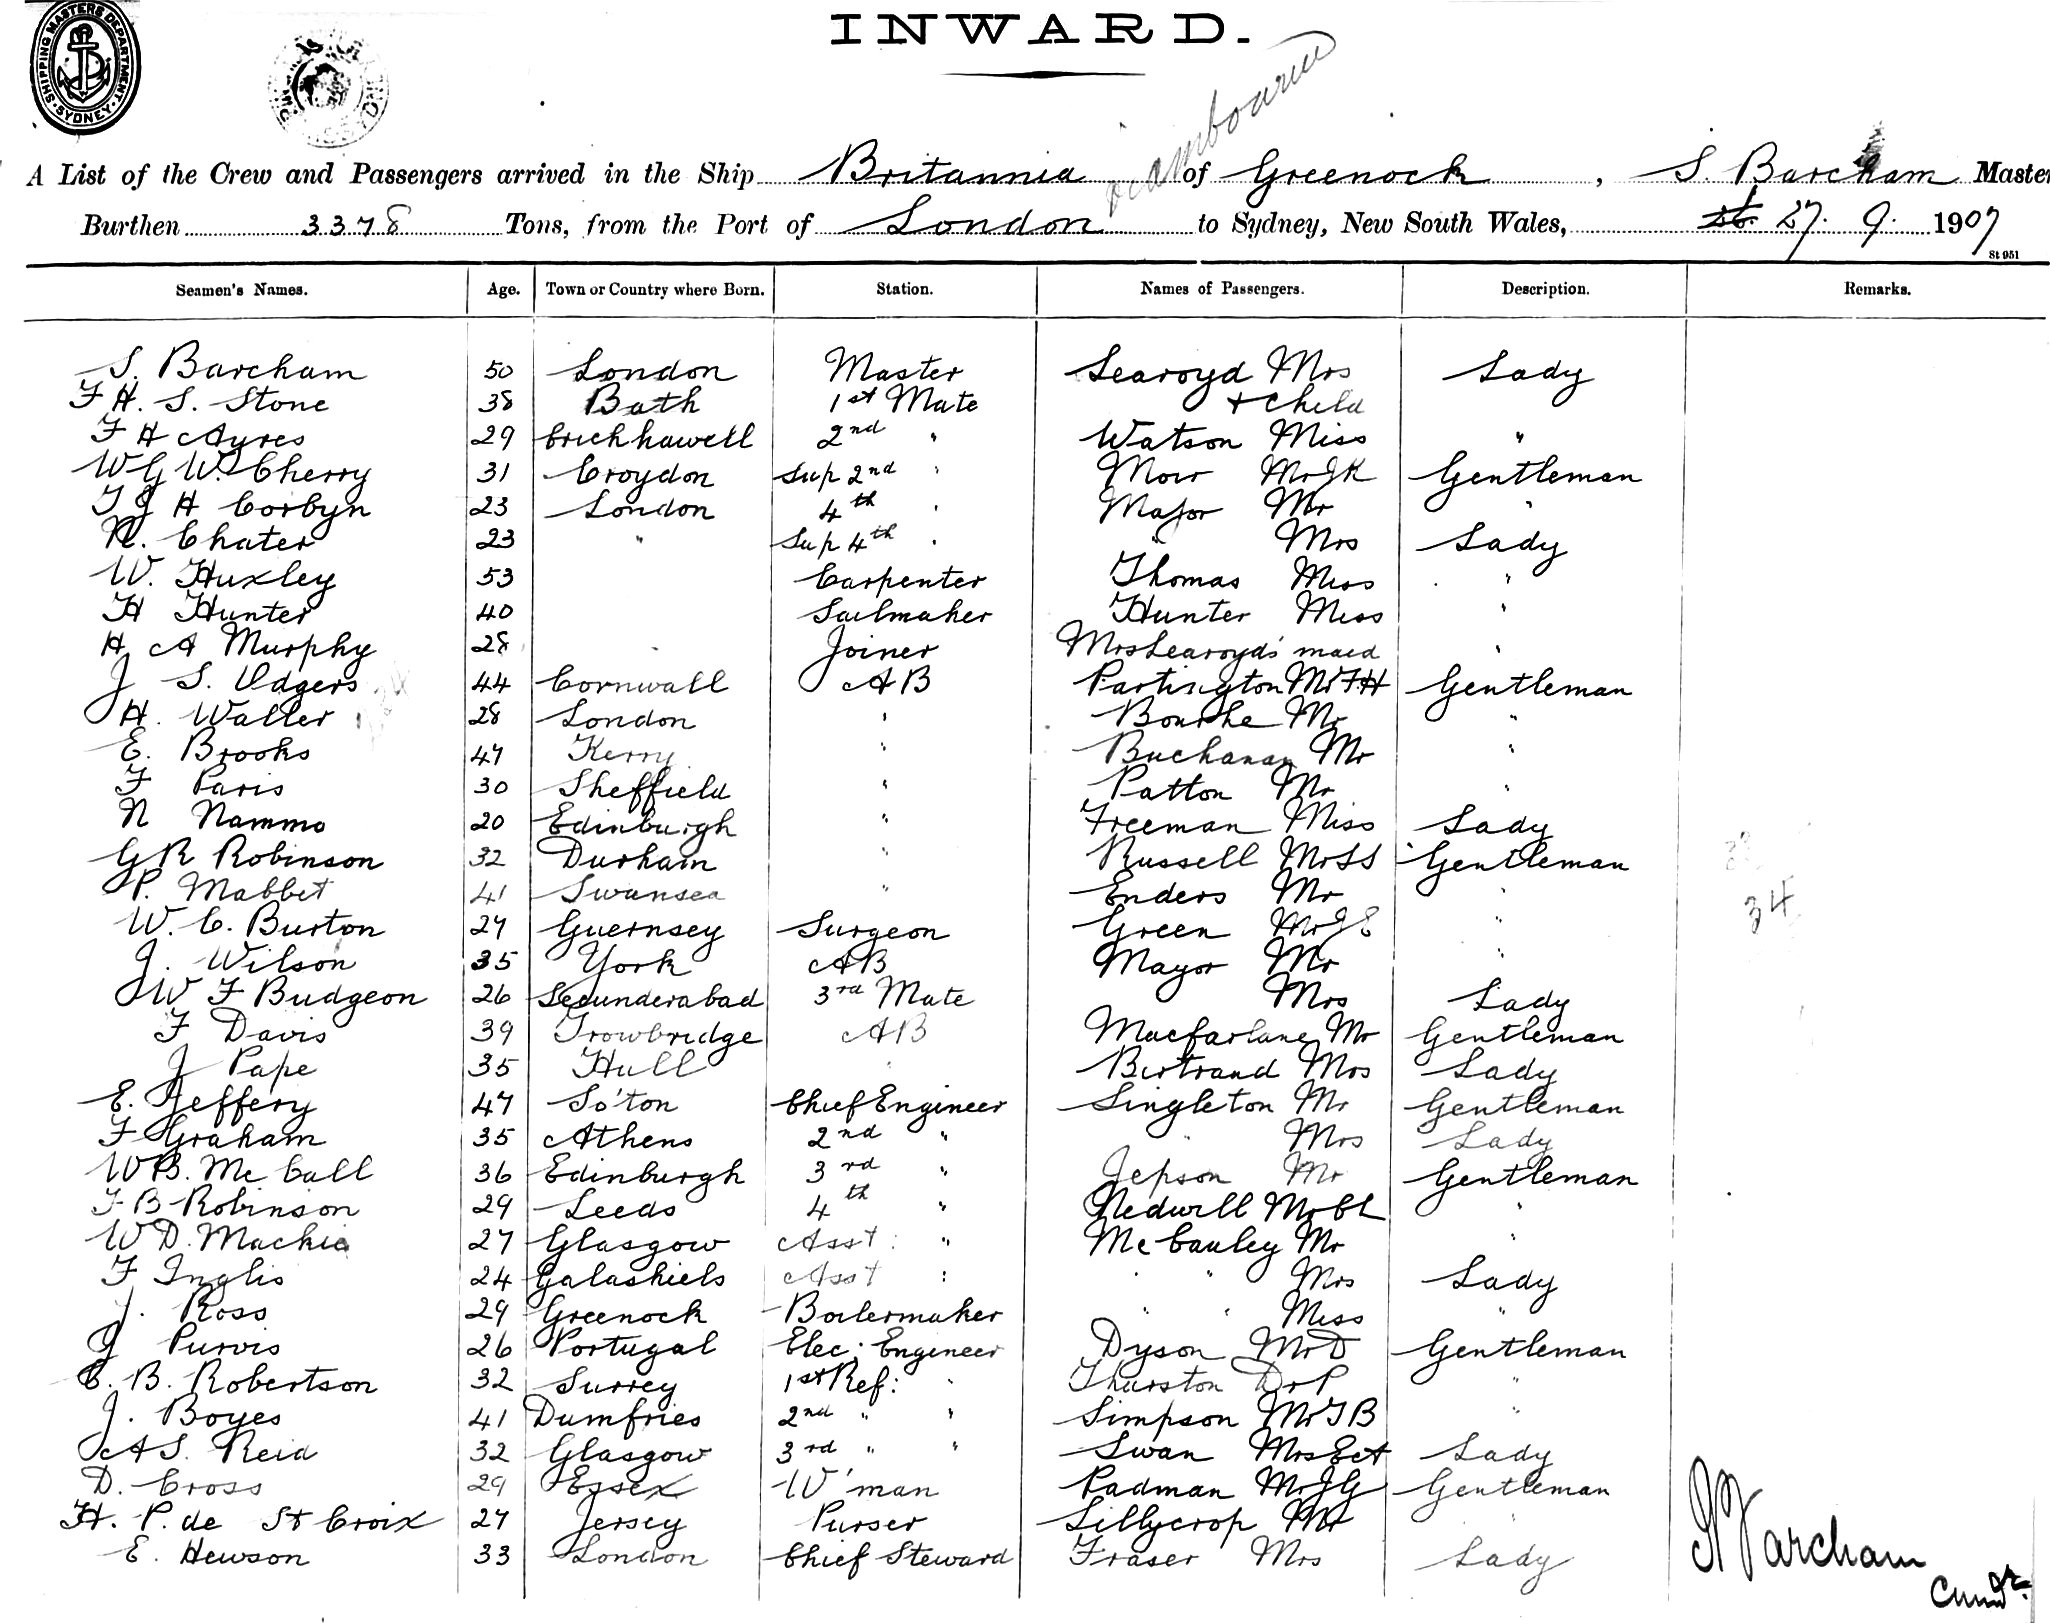 SHIPPING MASTERS DEPARTMENT. SYDNEY
INWARD.
A List of the Crew and Passengers arrived in the Ship Britannia of Greenock, S. Barcham Master
Burthen 3378 Tons, from the Port of London to Sydney, New South Wales, 27. 9. 1907
St 951
Seamen's Names. Age. Town or Country where Born. Station. Names of Passengers. Description. Remarks.
S. Barcham 50 London Master Learoyd Mrs Lady
F H. S. Stone 38 Bath 1st Mate + Child
F H Ayres 29 Crickhowell 2nd " Watson Miss "
W G W. Cherry 31 Croydon Sup 2nd " Moir Mr J K Gentleman
T J H Corbyn 23 London 4th " Major Mr "
R. Chater 23 " Sup 4th " " Mrs Lady
W. Huxley 53 Carpenter Thomas Miss "
H Hunter 40 Sailmaker Hunter Miss "
H A Murphy 28 " Joiner Mrs Learoyds' maid "
J S. Odgers 44 Cornwall AB Partington Mr F. H Gentleman
H. Waller 28 London " Bourke Mr "
E. Brooks 47 Kerry " Buchanan Mr "
F Paris 30 Sheffield " Patton Mr "
N Nammo 20 Edinburgh " Freeman Miss Lady
G R Robinson 32 Durham " Russell Mr S S Gentleman
P. Mabbet 41 Swansea " Enders Mr "
W. C. Burton 27 Guernsey Surgeon Green Mr J E " 34
J. Wilson 35 York AB Mayor Mr "
J W F Budgeon 26 Secunderabad 3rd Mate Mrs Lady
F Davis 39 Trowbridge AB Macfarlane Mr Gentleman
J Pape 35 Hull " Bertrand Mrs Lady
E. Jeffery 47 So'ton Chief Engineer Singleton Mr Gentleman
F Graham 35 Athens 2nd " " Mrs Lady
W B. Mc Call 36 Edinburgh 3rd " Jepson Mr Gentleman
F B Robinson 29 Leeds 4th " Nedwill Mr C L "
W D. Mackie 27 Glasgow Asst: " Mc Cauley Mr "
F Inglis 24 Galashiels Asst : " " Mrs Lady
J. Ross 29 Greenock Boilermaker " " Miss "
J Purvis 26 Portugal Elec: Engineer Dyson Mr D Gentleman
C. B. Robertson 32 Surrey 1st Ref: " Thurston Dr P "
J. Boyes 41 Dumfries 2nd " " Simpson Mr T B "
A S. Reid 32 Glasgow 3rd " " Swan Mrs E A Lady
D. Cross 29 Essex W'man Padman Mr J G Gentleman
H. P. de St Croix 27 Jersey Purser Lillycrop Mr "
E. Hewson 33 London Chief Steward Fraser Mrs Lady
S Barcham